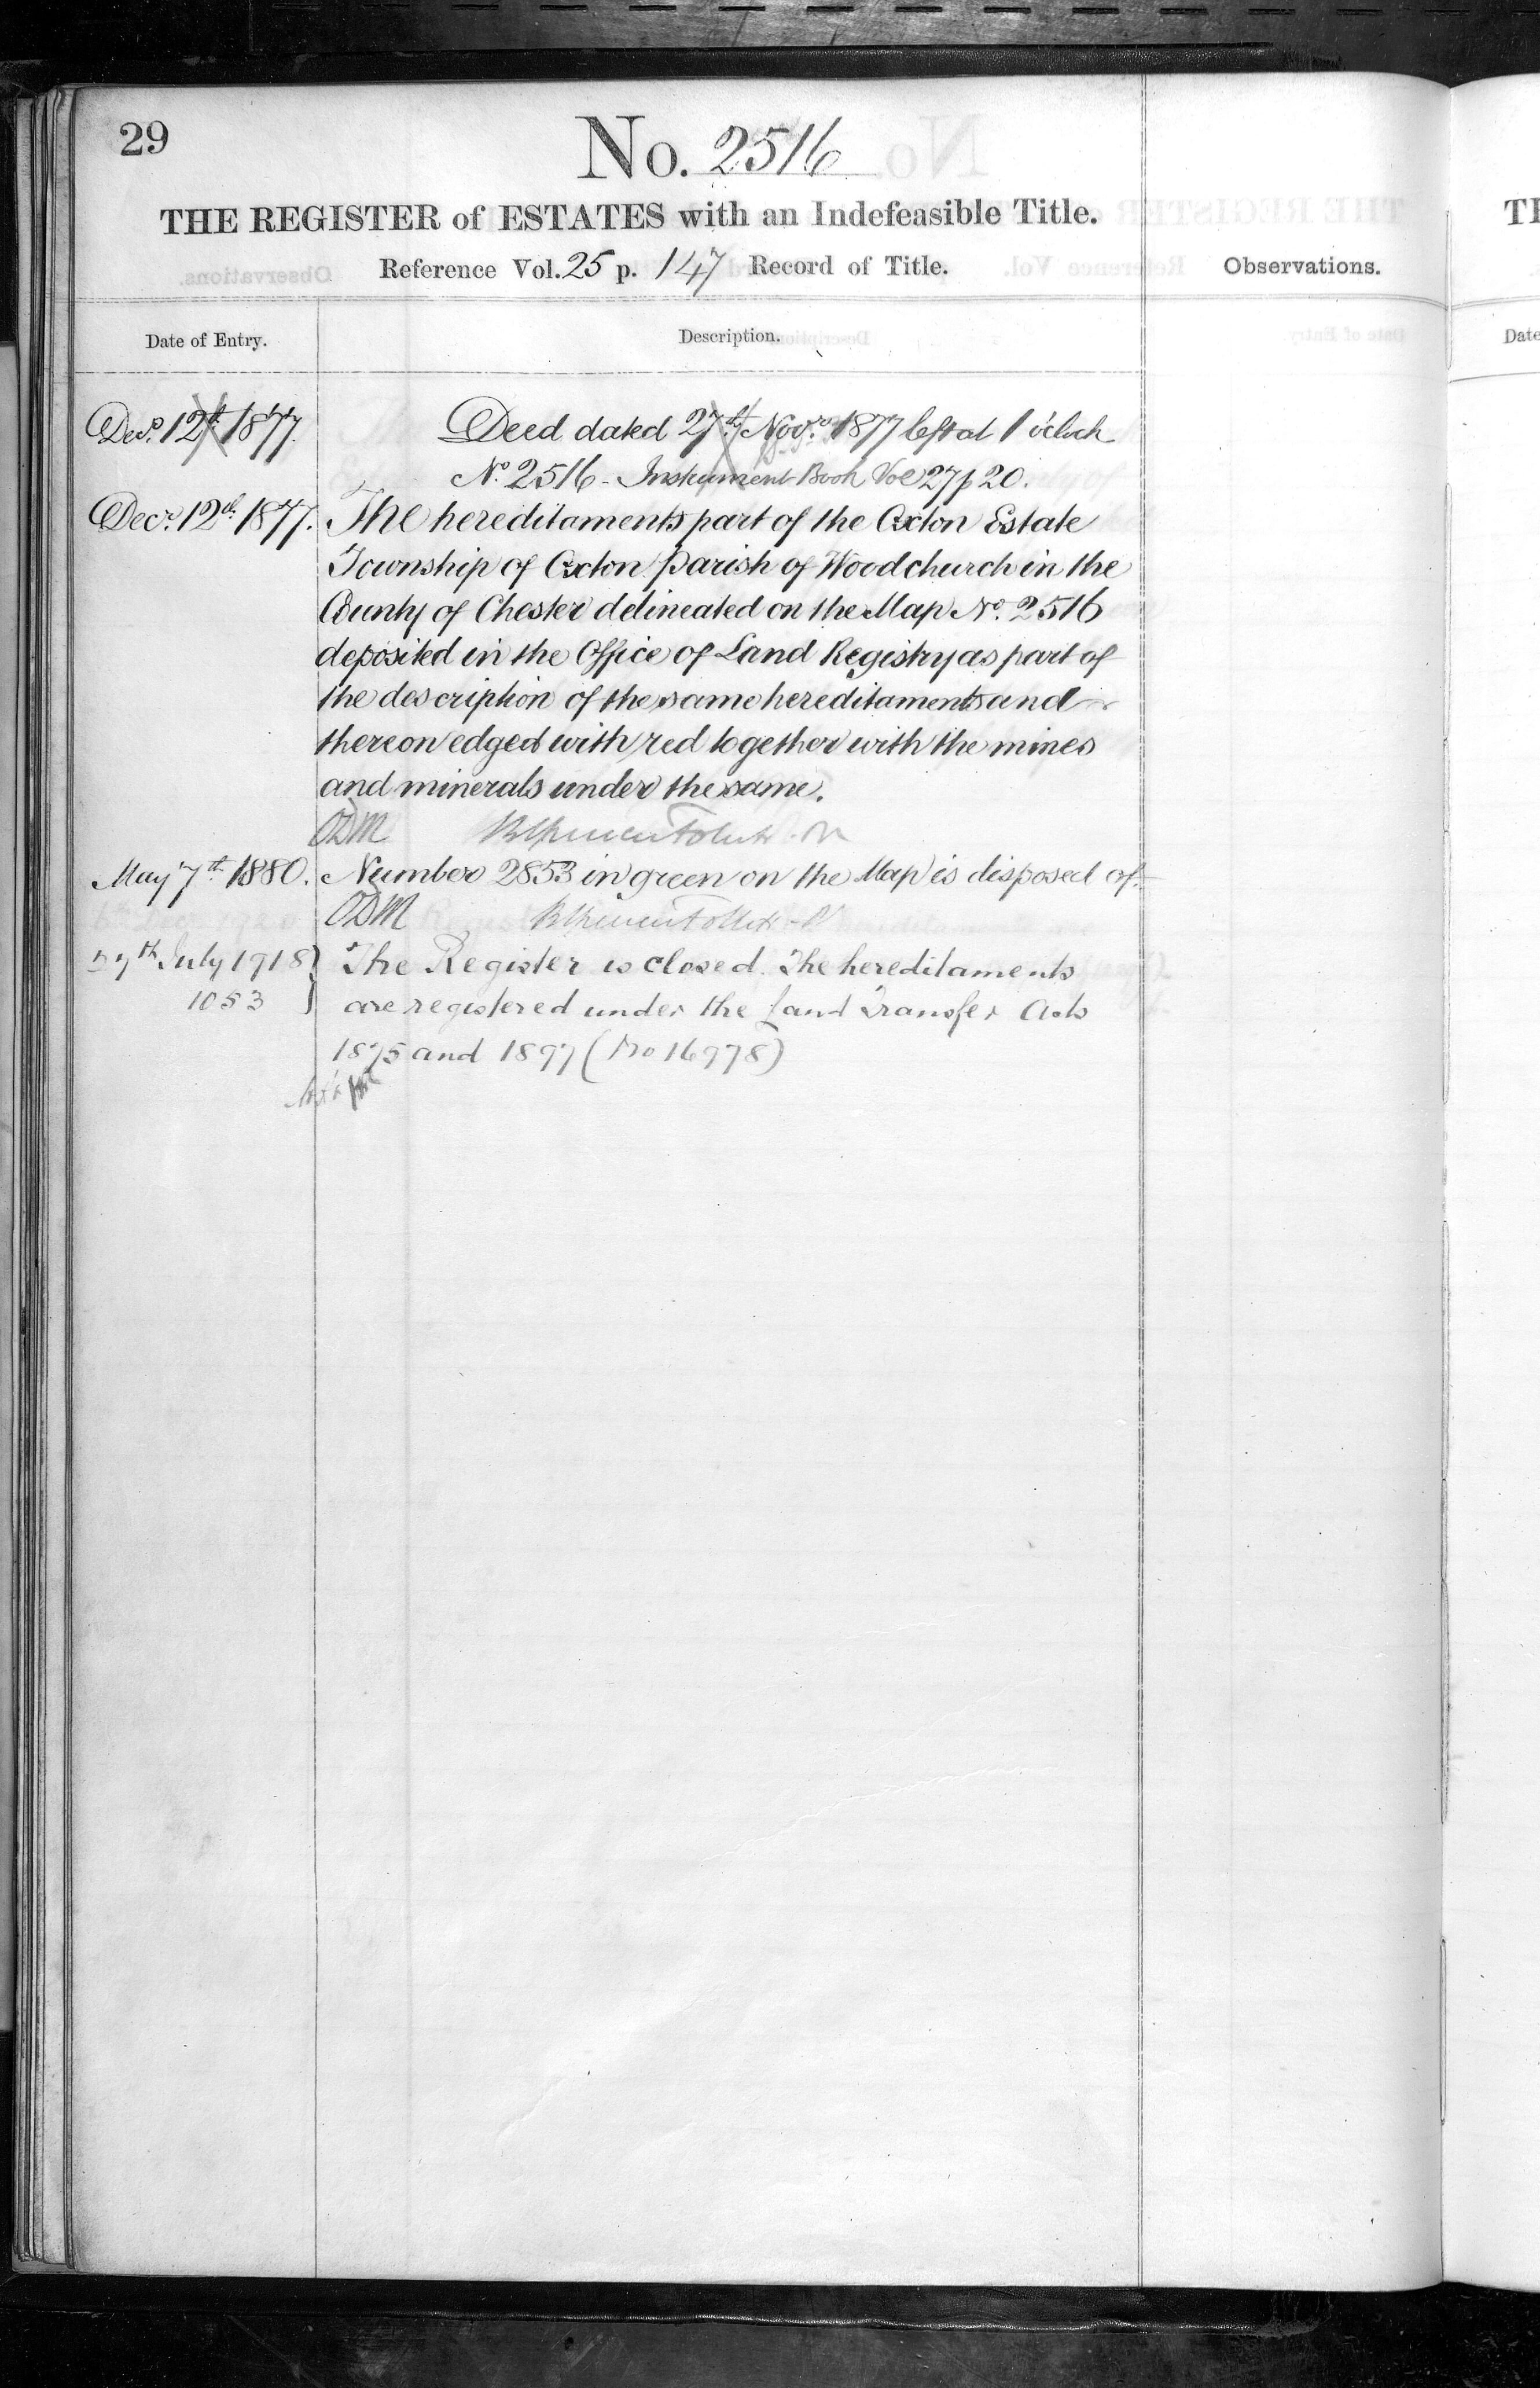 29
No. 2516
THE REGISTER of ESTATES with an Indefeasible Title.
Reference Vol. 25 p. 147 Record of Title.
Observations.
Date of Entry.
Description.
Decr. 12th 1877.
Deed dated 27th Novr. 1877 left at 1 o'clock
No. 2516 - Instrument Book Vol 27 p 20.
Decr. 12th 1877. The hereditaments part of the Oxton Estate
Township of Oxton Parish of Woodchurch in the
County of Chester delineated on the Map No. 2516
deposited in the Office of Land Registry as part of
the description of the same hereditaments and
thereon edged with red together with the mines
and minerals under the same.
ODM
May 7th 1880. Number 2853 in green on the Map is disposed of.
ODM
July 1918 } The Register is closed. The hereditaments
1053 } are registered under the Land Transfer Acts
1875 and 1897 (No 16978)
TH
Date